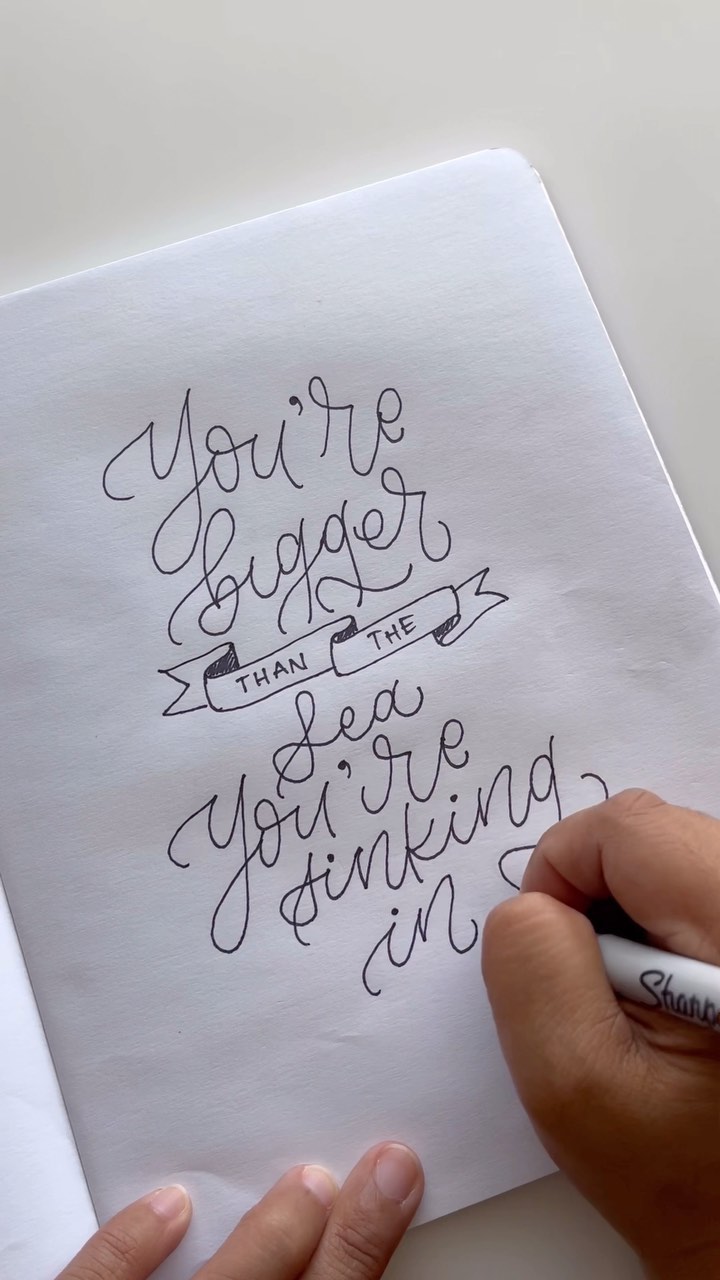 You're
bigger
THAN THE
Sea
You're
sinking
in
Sharp